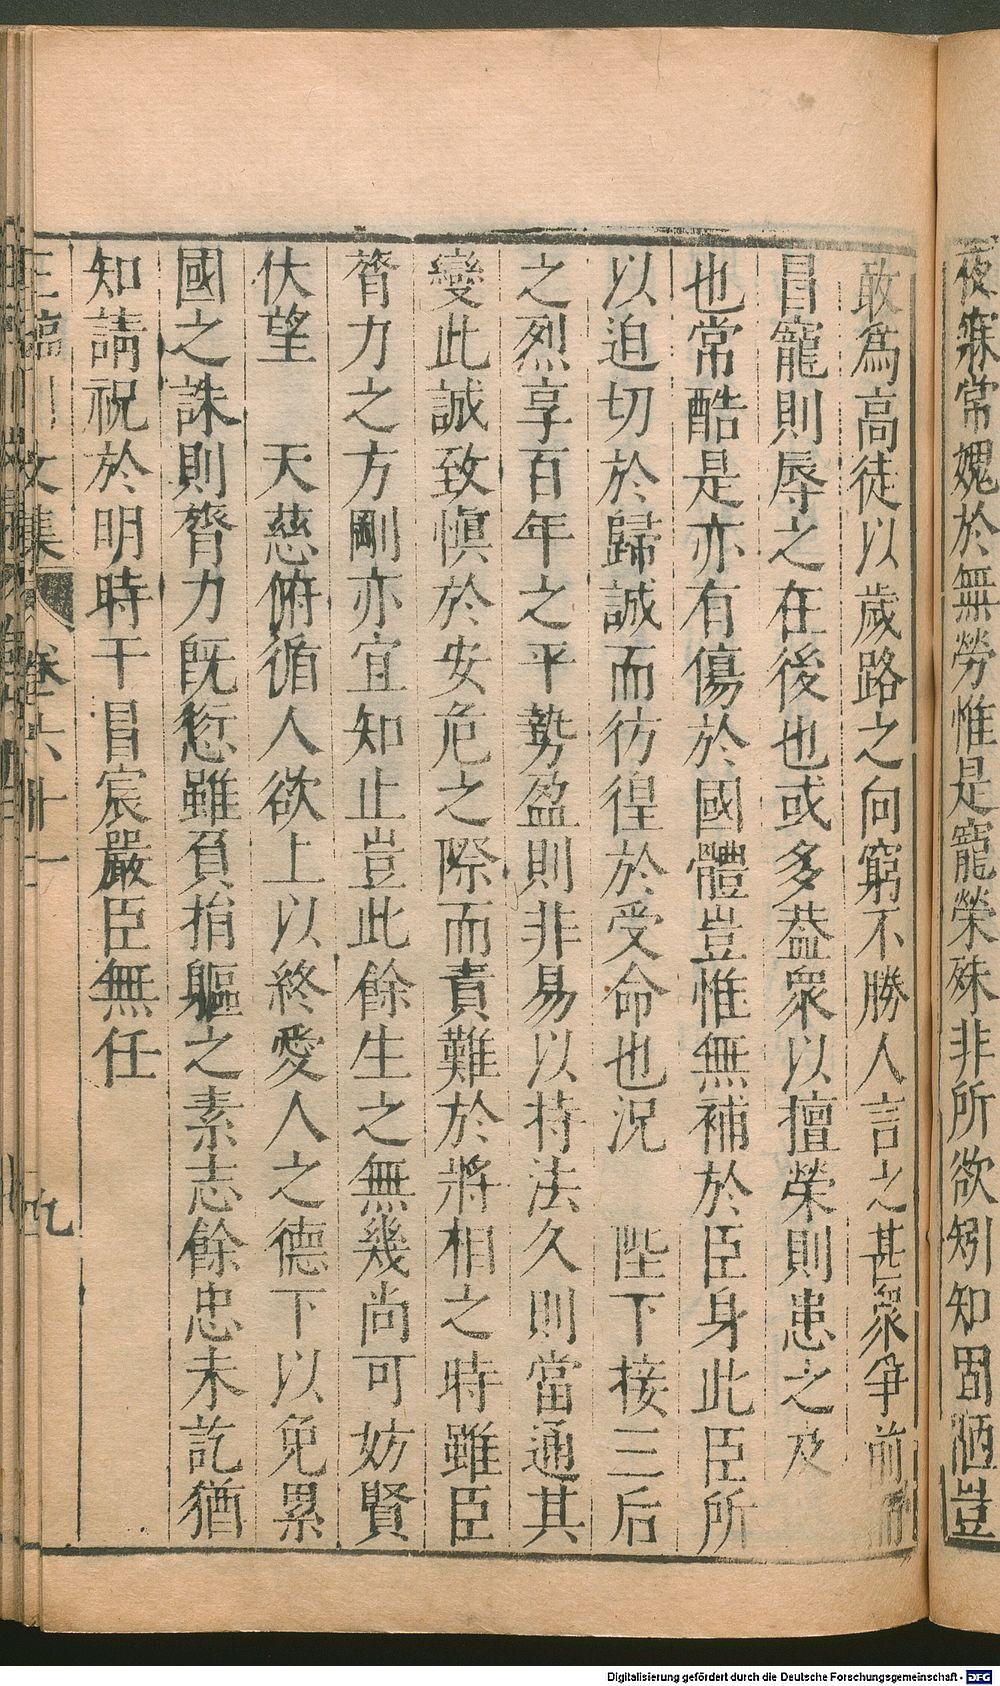 夜寐常媿於無勞惟是寵榮殊非所欲矧知固陋豈
敢爲高徒以歲路之向窮不勝人言之甚衆爭前而
冒寵則辱之在後也或多葢衆以擅榮則患之及
也常酷是亦有傷於國體豈惟無補於臣身此臣所
以迫切於歸誠而彷徨於受命也況　陛下接三后
之烈享百年之平勢盈則非易以持法久則當通其
變此誠致愼於安危之際而責難於將相之時雖臣
膂力之方剛亦宜知止豈此餘生之無幾尚可妨賢
伏望　天慈俯循人欲上以終愛人之德下以免累
國之誅則膂力既愆雖負捐軀之素志餘忠未訖猶
知請祝於明時干冒宸嚴臣無任
王臨川文集　卷六十一　九
Digitalisierung gefördert durch die Deutsche Forschungsgemeinschaft - DFG